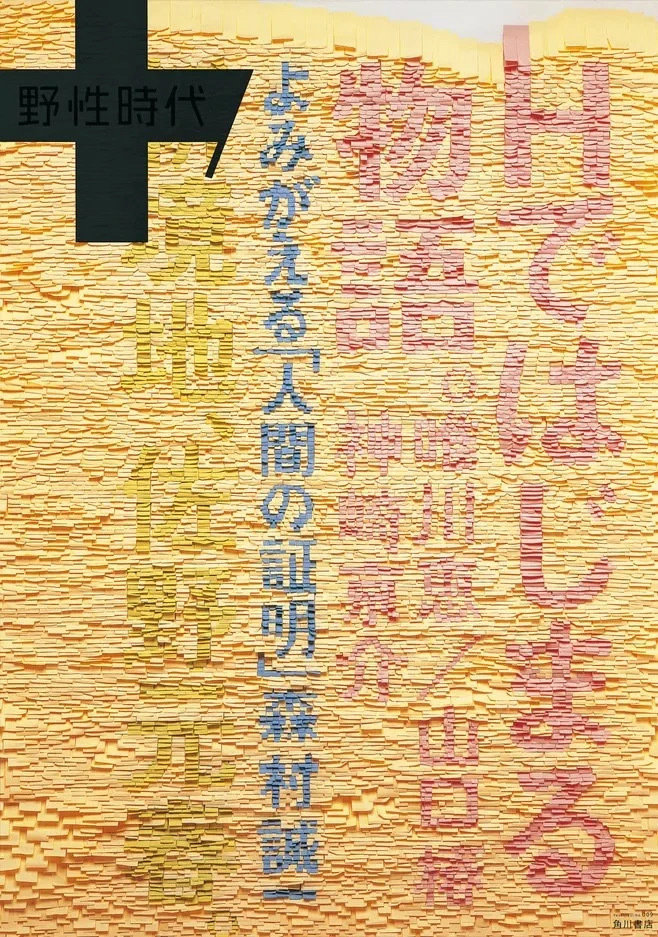 野性時代
Hではじまる
物語。唯川恵／山口椿
神崎京介
よみがえる「人間の証明」森村誠一
荒地、佐野元春
角川書店